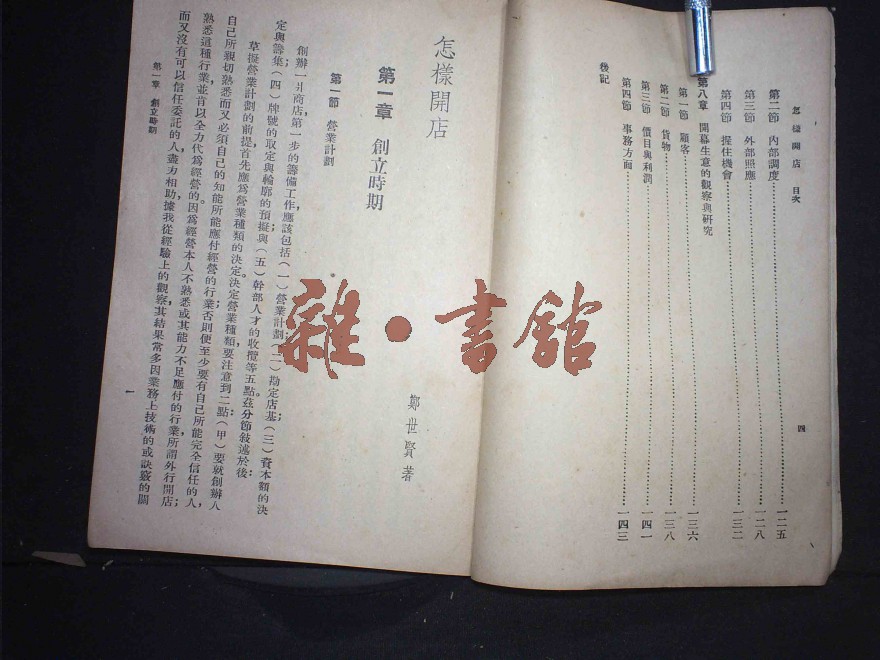 怎樣開店 目次
四
第二節 內部調度……一二五
第三節 外部照應……一二八
第四節 握住機會……一三二
第八章 開幕生意的觀察與研究
第一節 顧客……一三六
第二節 貨物……一三八
第三節 價目與利潤……一四一
第四節 事務方面……一四三
後記
怎樣開店
鄭世賢著
第一章 創立時期
第一節 營業計劃
創辦一爿商店,第一步的籌備工作應該包括(一)營業計劃;(二)勘定店基(三)資本額的決
定與籌集(四)牌號的取定與輪廓的預擬與(五)幹部人才的收攬等五點。茲分節敍述於後:
草擬營業計劃的前提首先應爲營業種類的決定。決定營業種類,要注意到二點:(甲)要就創辦人
自己所親切熟悉而又必須自己的知能所能應付經營的行業;否則便至少要有自己所能完全信任的人,
熟悉這種行業,並肯以全力代爲經營的。因爲經營本人不熟悉或其能力不足應付的行業,所謂外行開店;
而又沒有可以信任委託的人盡力相助,據我從經驗上的觀察,其結果常多因業務上技術的或訣竅的關
第一章 創立時期
一
雜·書館